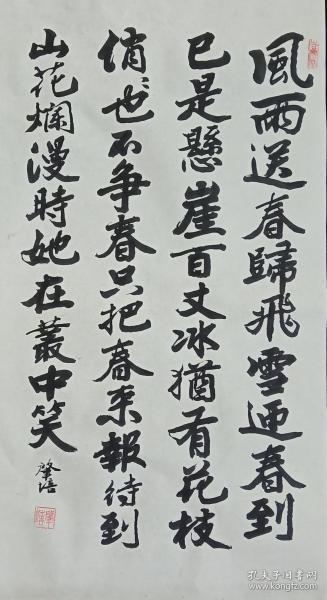 風雨送春歸飛雪迎春到
已是懸崖百丈冰猶有花枝
俏〻也不争春只把春来報待到
山花爛漫時她在叢中笑
孔夫子旧书网
www.kongfz.com